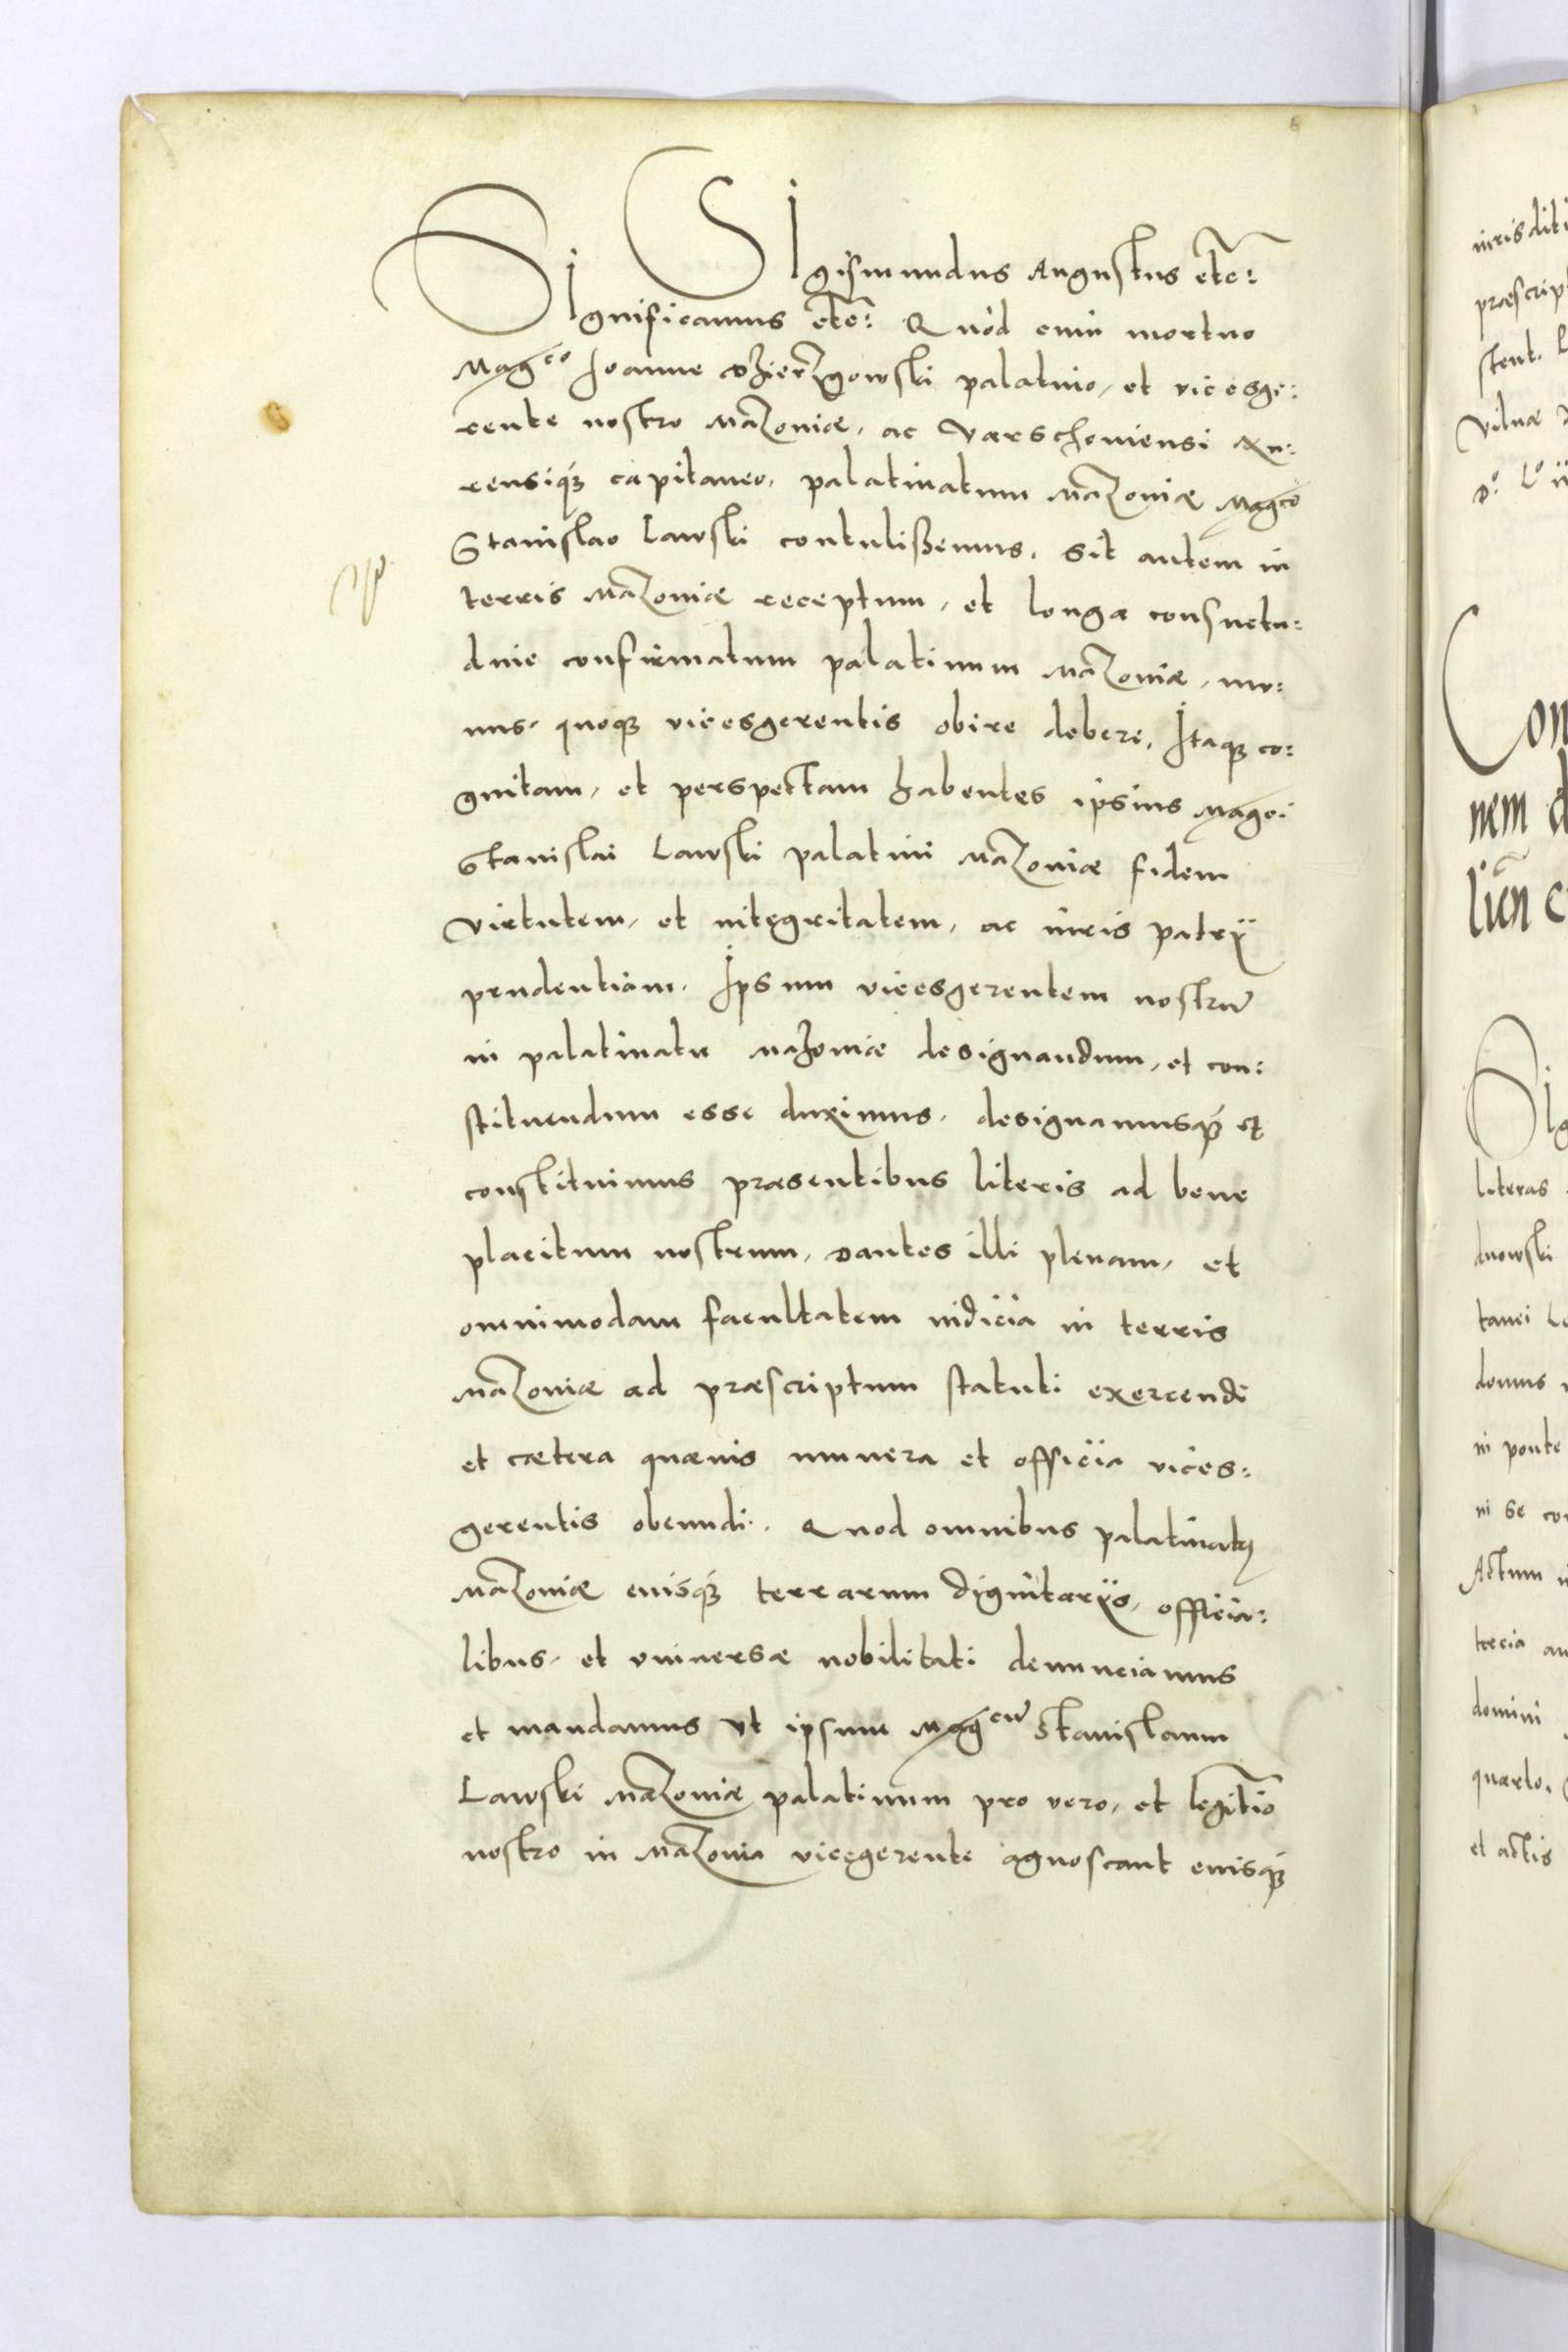 6
SIgismundus Augustus etc:
SIgnificamus etc: Quòd cum mortuo
Mag^co Joanne Dzierzgowski palatino, et vicesge:
rente nostro Mazoviæ, ac Varschoviensi
rensiq₃ capitaneo, palatinatum Mazoviæ Mag^co
Stanislao Lawski contulißemus, sit autem in
terris Mazoviæ receptum, et longa consuetu:
dine confirmatum palatinum Mazoviæ, mu:
nus, quoq₃ vicesgerentis obire debere, Itaq₃ co:
gnitam, et perspectam habentes ipsius Mag^ci
Stanislai Lawski palatini Mazoviæ fidem
virtutem, et integritatem, ac iuris patrij
prudentiam, Ipsum vicesgerentem nostrū
in palatinatu Mazoviæ designandum, et con:
stituendum esse duximus, designamusq₃ et
constituimus præsentibus literis ad bene
placitum nostrum, Dantes illi plenam, et
omnimodam facultatem iudicia in terris
Mazoviæ ad præscriptum statuti exercendi
et cætera quævis munera et officia vices:
gerentis obeundi. Quod omnibus palatinatus
Mazoviæ eiusq₃ terrarum dignitarijs, officia:
libus, et vniversæ nobilitati denunciamus
et mandamus vt ipsum Mag^cū Stanislaum
Lawski Mazoviæ palatinum pro vero, et legitīo
nostro in Mazovia vicęgerente agnoscant eiusq₃
iurisditi
præscrip
stent.
Vilnæ
D° L°
Con
nem d
lien c
SIg
literas
dnowski
tanei
domus
in ponte
ni se con
Actum
tercia an
domini
quarto.
et actis